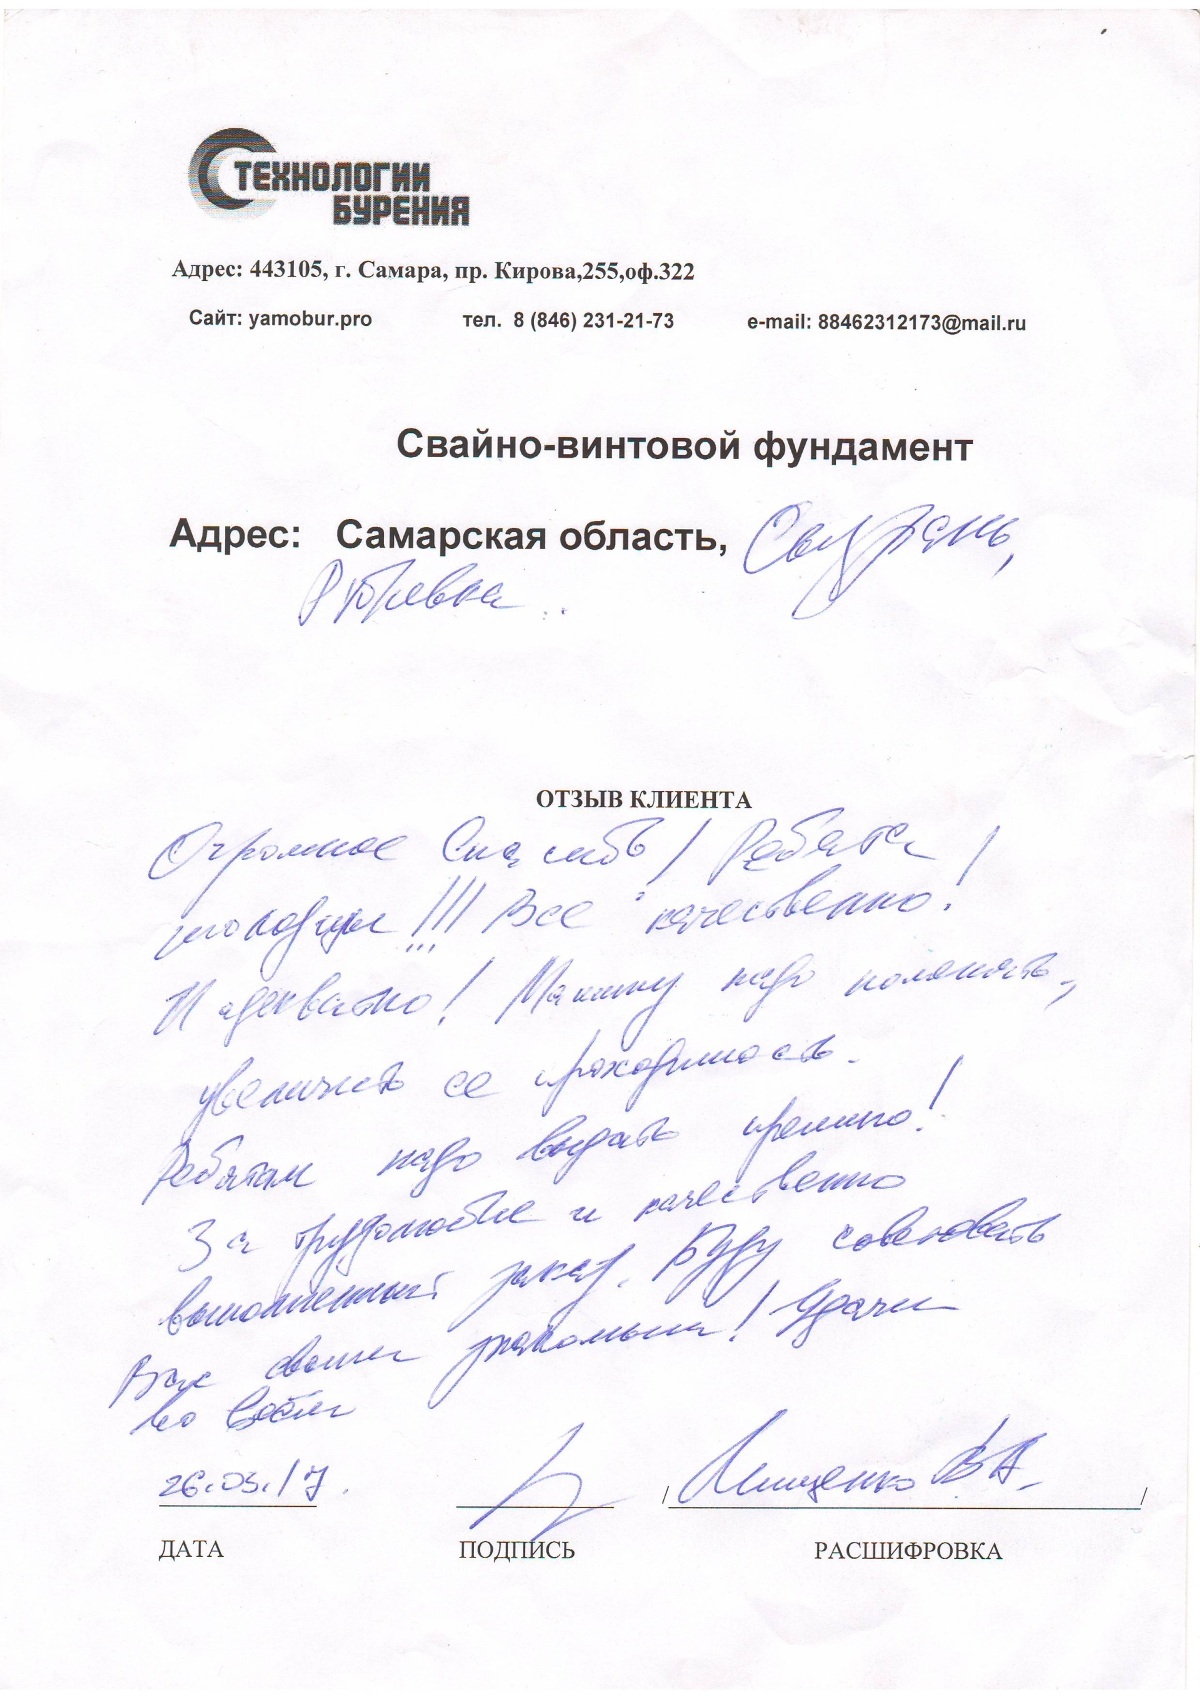 ТЕХНОЛОГИИ
БУРЕНИЯ
Адрес: 443105, г. Самара, пр. Кирова,255,оф.322
Сайт: yamobur.pro тел. 8 (846) 231-21-73 e-mail: 88462312173@mail.ru
Свайно-винтовой фундамент
Адрес: Самарская область, Сызрань,
ОТЗЫВ КЛИЕНТА
Огромное Спасибо! Ребята
молодцы!!! Все качественно!
И адекватно! Машину надо поменять,
увеличить ее проходимость.
Ребятам надо выдать премию!
За трудолюбие и качественно
выполненный заказ. Буду советовать
Вас своим знакомым! Удачи
во всем
26.03.17.
/ Мищенко В А. /
ДАТА ПОДПИСЬ РАСШИФРОВКА